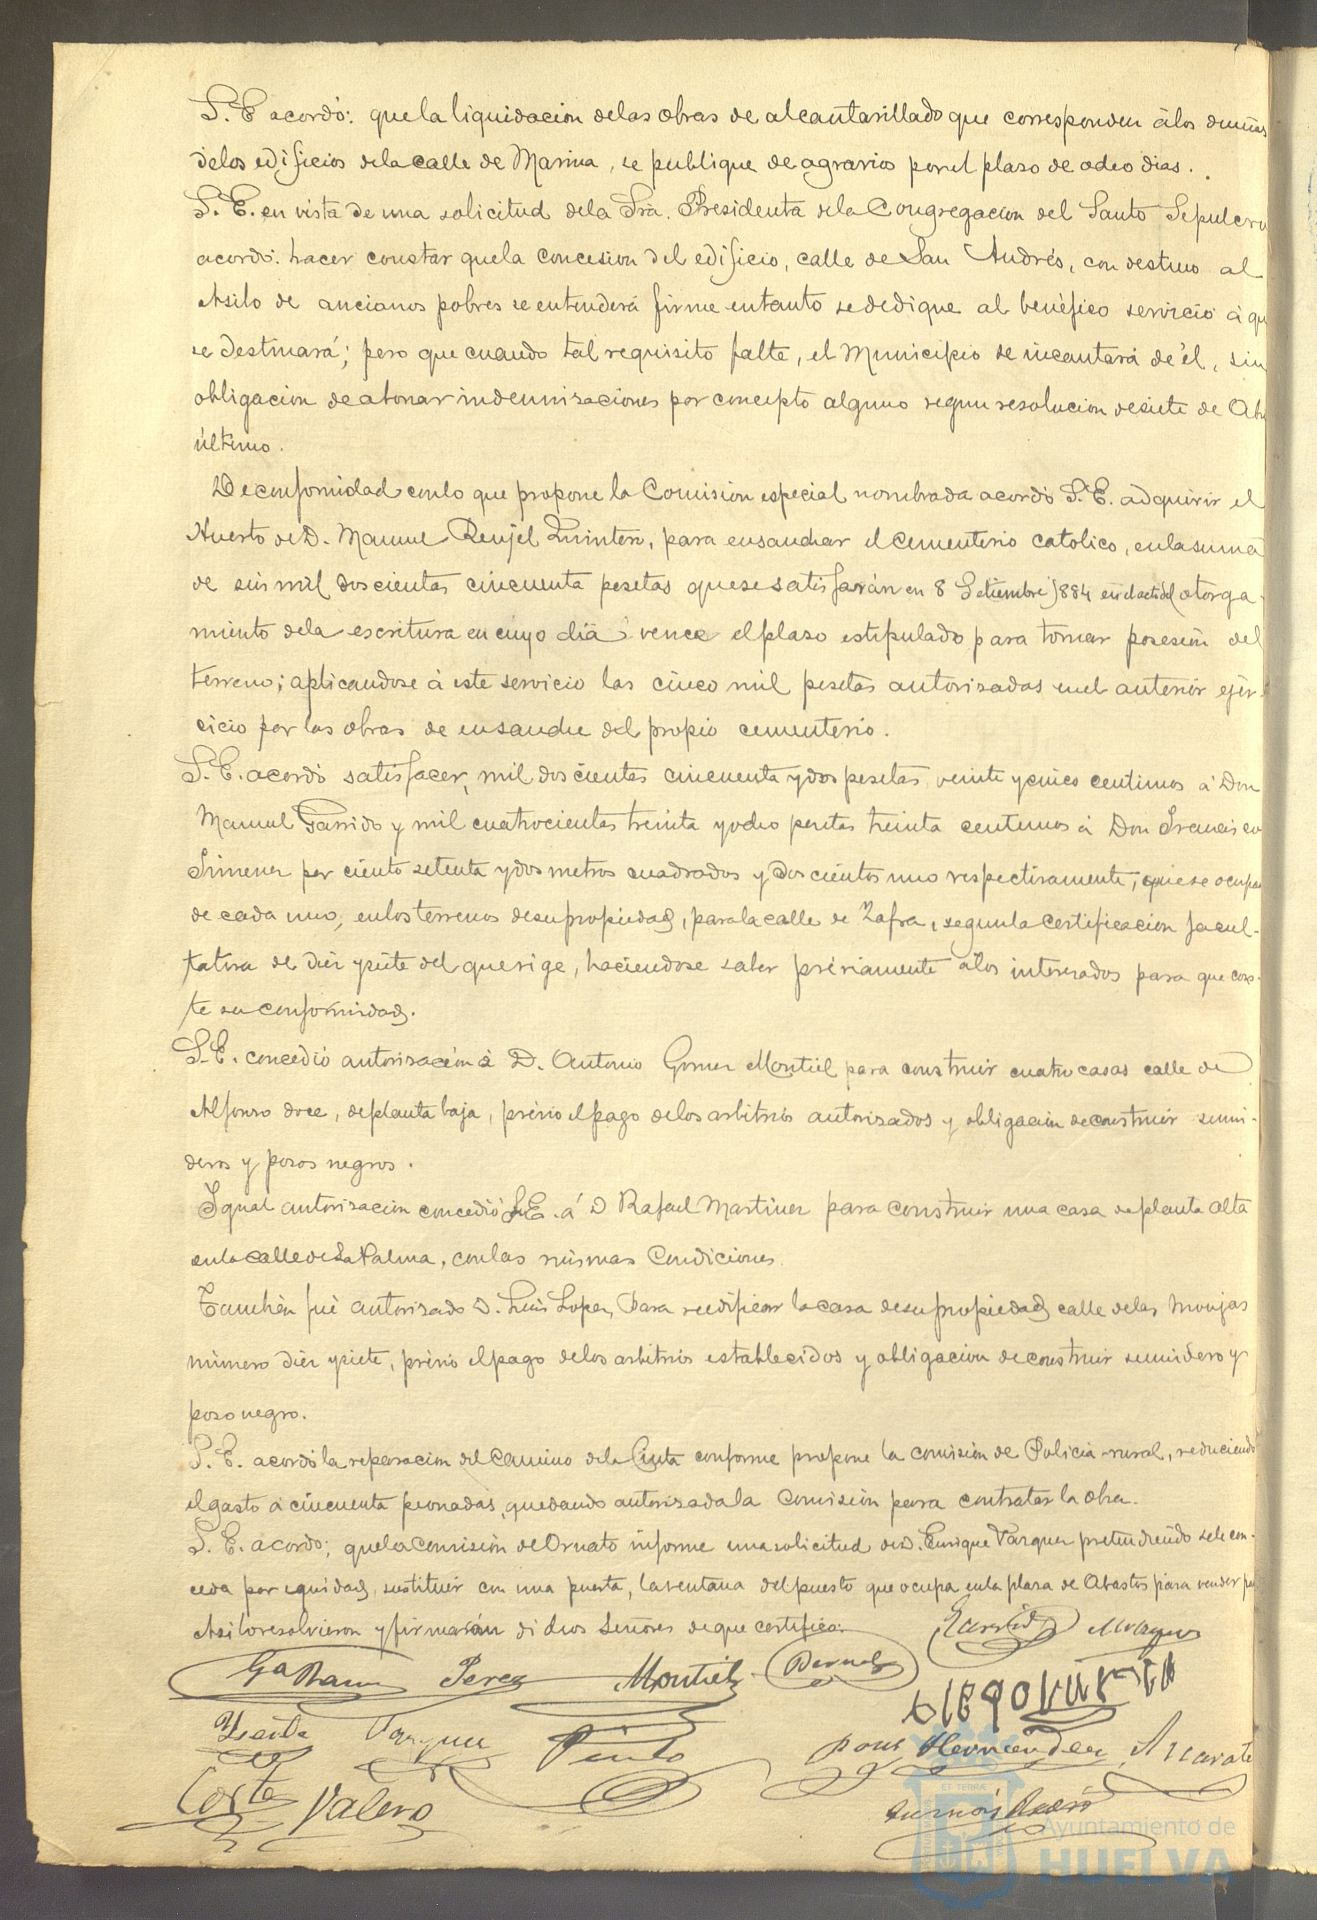 S. E. acordó: que la liquidacion de las obras de alcantarillado que corresponden á los dueños
de los edificios de la calle de Marina, se publique de agravios por el plazo de ocho dias.
S. E. en vista de una solicitud de la Sra. Presidenta de la Congregacion del Santo Sepulcro
acordó: hacer constar que la concesion del edificio, calle de San Andrés, con destino al
Asilo de ancianos pobres se entenderá firme en tanto se dedique al benéfico servicio á qu
se destinará; pero que cuando tal requisito falte, el Municipio se incautará de él, sin
obligacion de abonar indemnizaciones por concepto alguno segun resolucion de siete de Ab
último.
De conformidad con lo que propone la Comision especial nombrada acordó S. E. adquirir el
Huerto de D. Manuel Renjel Quintero, para ensanchar el cementerio catolico, en la suma
de seis mil doscientas cincuenta pesetas que se satisfarán en 8 Setiembre 1884 en el acto del otorga
miento de la escritura en cuyo dia vence el plazo estipulado para tomar posesión del
terreno; aplicandose á este servicio las cinco mil pesetas autorizadas en el anterior ejer-
cicio por las obras de ensanche del propio cementerio.
S. E. acordó satisfacer, mil doscientas cincuenta y dos pesetas veinte y cinco centimos á Don
Manuel Garrido y mil cuatrocientas treinta y ocho pesetas treinta centimos á Don Francisco
Jimenez por ciento setenta y dos metros cuadrados y doscientos uno respectivamente, que se ocupa
de cada uno, en los terrenos de su propiedad, para la calle de Zafra, segun la certificacion facul-
tativa de diez y siete del que rige, haciendose saber préviamente á los interesados para que cons-
te su conformidad.
S. E. concedió autorización á D. Antonio Gomez Montiel para construir cuatro casas calle de
Alfonso doce, de planta baja, prévio el pago de los arbitrios autorizados y obligación de construir sumi-
deros y pozos negros.
Igual autorizacion concedió S. E. á D Rafael Martinez para construir una casa de planta alta
en la calle de La Palma, con las mismas Condiciones.
También fué autorizado D. Luis Lopez, Para reedificar la casa de su propiedad calle de las Monjas
número diez y siete, prévio el pago de los arbitrios establecidos y obligacion de construir sumidero y
pozo negro.
S. E. acordó la reparacion del camino de la Cinta conforme propone la comisión de Policia rural, reduciendo
el gasto á cincuenta peonadas, quedando autorizada la Comisión para contratar la obra.
S. E. acordó; que la comisión de Ornato informe una solicitud de D. Enrique Vazquez pretendiendo se le con-
ceda por equidad, sustituir con una puerta, la ventana del puesto que ocupa en la plaza de Abastos para vender
Asi lo resolvieron y firmarán dichos Señores de que certifico.
Garrido Marquez
Perez Montiel Bernal
Vazquez Pinto Hernandez Azcarate
Corte Valero
ET TERRÆ
Ayuntamiento de
HUELVA